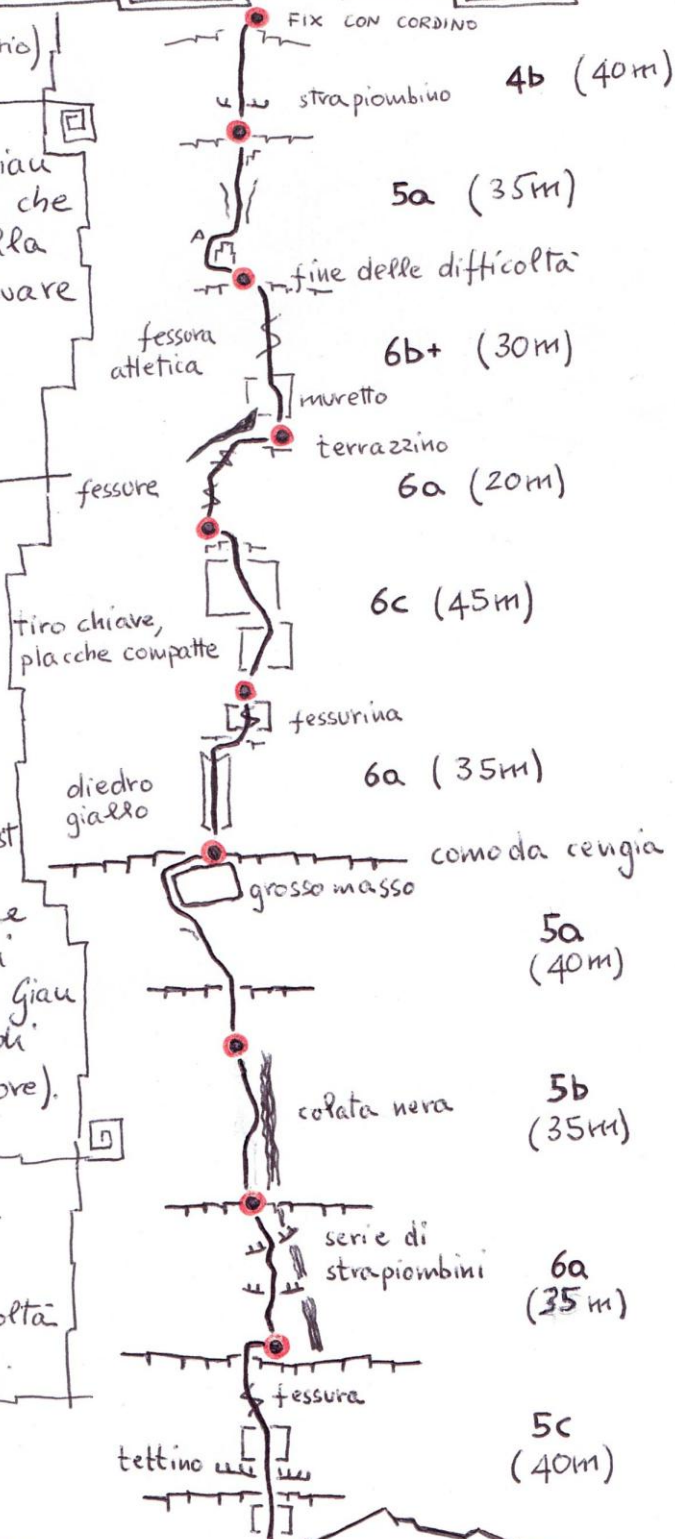 FIX CON CORDINO
4b (40m)
strapiombino
giau
che
5a (35m)
fine delle difficoltà
fessura
atletica
6b+ (30m)
muretto
terrazzino
fessure
6a (20m)
6c (45m)
tiro chiave,
placche compatte
fessurina
6a (35m)
diedro
giallo
comoda cengia
grosso masso
5a
(40m)
Giau
5b
(35m)
colata nera
serie di
strapiombini
6a
(35m)
fessura
5c
(40m)
tettino